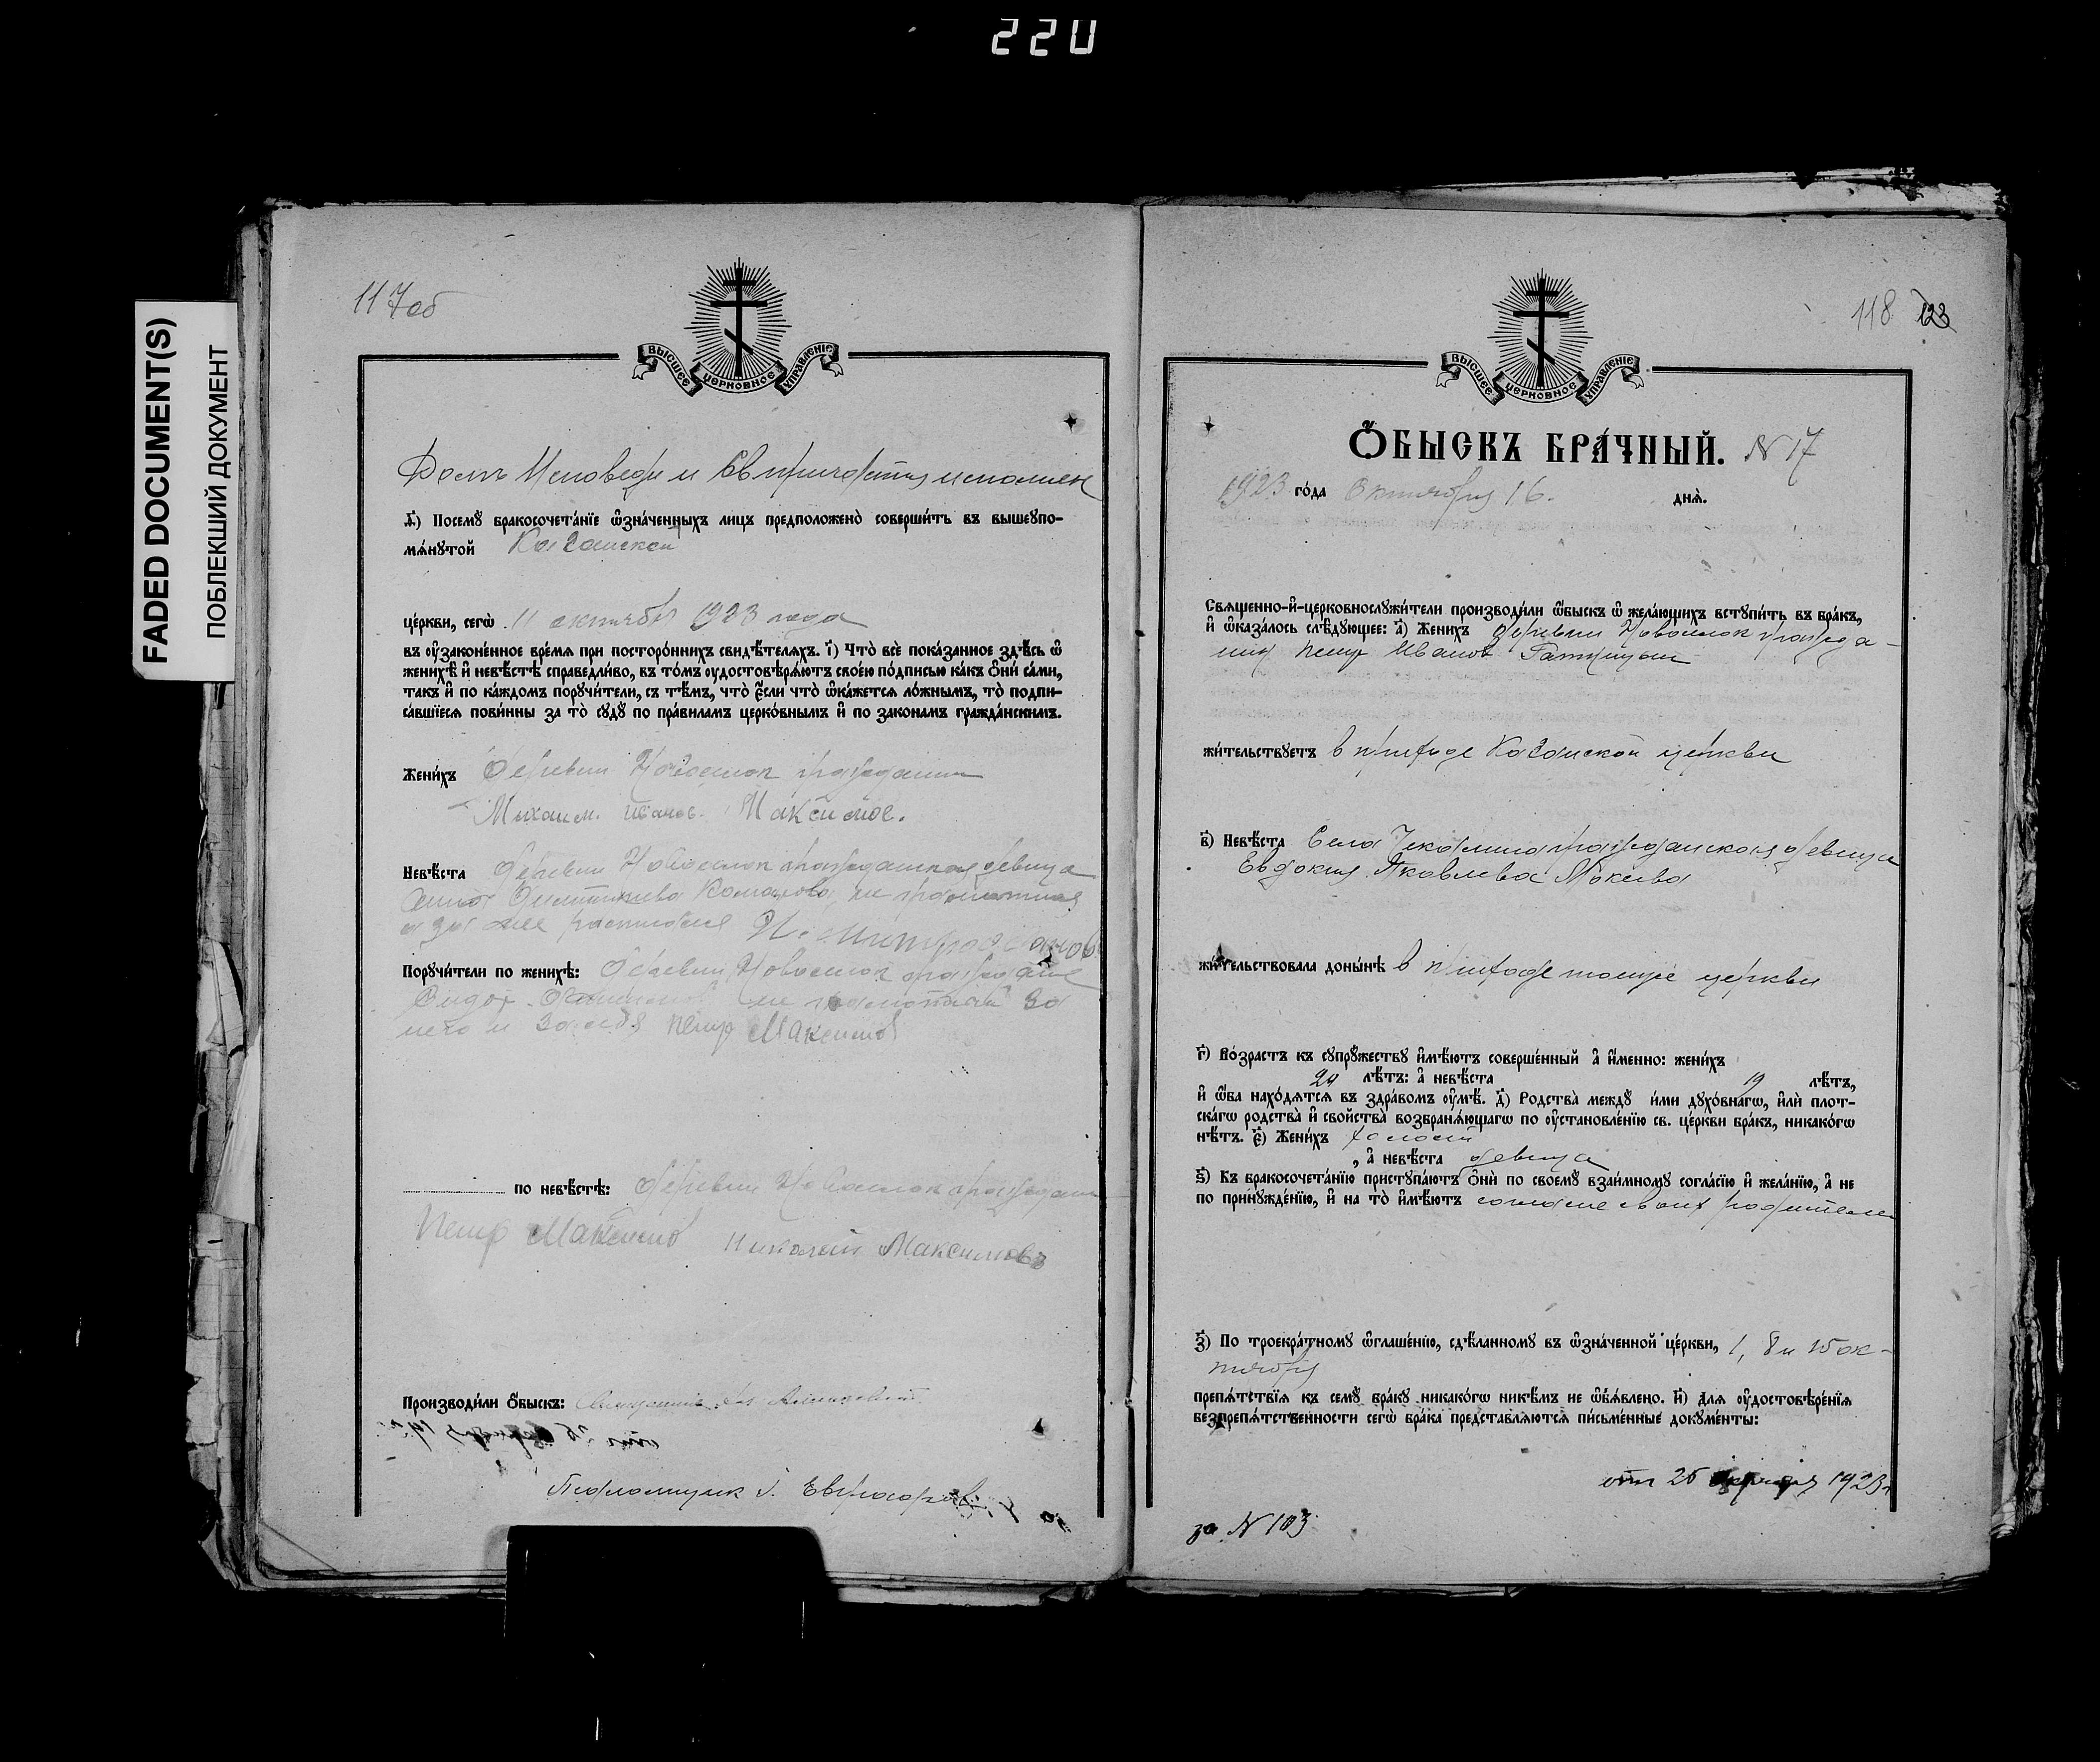 220
FADED DOCUMENT(S)
ПОБЛЕКШИЙ ДОКУМЕНТ
117об
ВЫСШЕЕ ЦЕРКОВНОЕ УПРАВЛЕНІЕ
Долгъ Исповеди и Св причастия исполнен
Ѳ҃) Посемꙋ̀ бракосочета́нїе ѡ҆зна́ченныхъ лицъ предположено̀ соверши́ть въ вышеупо-
мѧ́нутой Казанской
це́ркви, сегѡ̀ 11 октября 1923 года
въ оу҆зако́ненное вре́мѧ при посторо́ннихъ свидѣ́телѧхъ. І҃) Что̀ всѐ пока́занное здѣ́сь ѡ҆
женихѣ̀ и҆ невѣ́стѣ справедли́во, въ то́мъ оудостовѣрѧ́ютъ свое́ю по́дписью ка́къ ѻ҆нѝ са́ми,
та́къ и҆ по ка́ждомъ поручи́тели, съ тѣ́мъ, что̀ є҆́сли что̀ ѡ҆ка́жетсѧ ло́жнымъ, то̀ подпи-
са́вшїесѧ пови́нны за то̀ судꙋ̀ по пра́виламъ церко́внымъ и҆ по зако́намъ гражда́нскимъ.
Жени́хъ Деревни Новоселок гражданин
Михаил. Иванов. Максимов.
Невѣ́ста деревни Новоселок гражданская девица
Анна Комарова, не грамотная
а за нее расписался
Поручи́тели по женихѣ̀: Деревни Новоселок граждане
не грамотный За
него и За себя Петр Максимов
по невѣ́стѣ: деревни Новоселок граждане
Петр Максимов Николай Максимовъ
Производи́ли ѻ҆́быскъ: Священник
Псаломщик
118 123
ВЫСШЕЕ ЦЕРКОВНОЕ УПРАВЛЕНІЕ
Ѻ҆́БЫСКЪ БРА́ЧНЫЙ. N 17
1923 го́да Октября 16. днѧ̀.
Свѧщенно-и҆-церковнослужи́тели производи́ли ѻ҆́быскъ ѡ҆ жела́ющихъ вступи́ть въ бра́къ,
и҆ ѡ҆каза́лось слѣ́дующее: а҃) Жени́хъ деревни Новоселок гражда-
нин Петр Иванов
жи́тельствуетъ в приходе Казанской церкви
в҃) Невѣ́ста Села гражданская девица
Евдокия Яковлева Мокеева
жи́тельствовала доны́нѣ в приходе тоище церкви
г҃) Во́зрастъ къ супрꙋ́жеству и҆мѣ́ютъ соверше́нный а҆ и҆́менно: жени́хъ
24 лѣ́тъ: а҆ невѣ́ста 19 лѣ́тъ,
и҆ ѻ҆́ба нахо́дѧтсѧ въ здра́вомъ оу҆мѣ̀. д҃) Родства̀ междꙋ̀ и́ми духо́внагѡ, и҆лѝ плот-
ска́гѡ родства̀ и҆ свойства̀ возбранѧ́ющагѡ по оу҆становле́нїю св. це́ркви бра́къ, никако́гѡ
нѣ́тъ. є҃) Жени́хъ холост
, а҆ невѣ́ста девица
ѕ҃) Къ бракосочета́нїю приступа́ютъ ѻ҆нѝ по своемꙋ̀ взаи́мному согла́сїю и҆ жела́нїю, а҆ не
по принужде́нїю, и҆ на то̀ и҆мѣ́ютъ согласие своих родителей
з҃) По троекра́тному ѡ҆глаше́нїю, сдѣ́ланному въ ѡ҆зна́ченной це́ркви, 1, 8 и 15 ок-
тября
препѧ́тствїѧ къ семꙋ̀ бра́ку никако́гѡ никѣ́мъ не ѡ҆б̾ѧ́влено. и҃) Длѧ оу҆достовѣре́нїѧ
безпрепѧ́тственности сегѡ̀ бра́ка представлѧ́ютсѧ пи́сьменные докуме́нты:
от 26 1923 г
за N 103